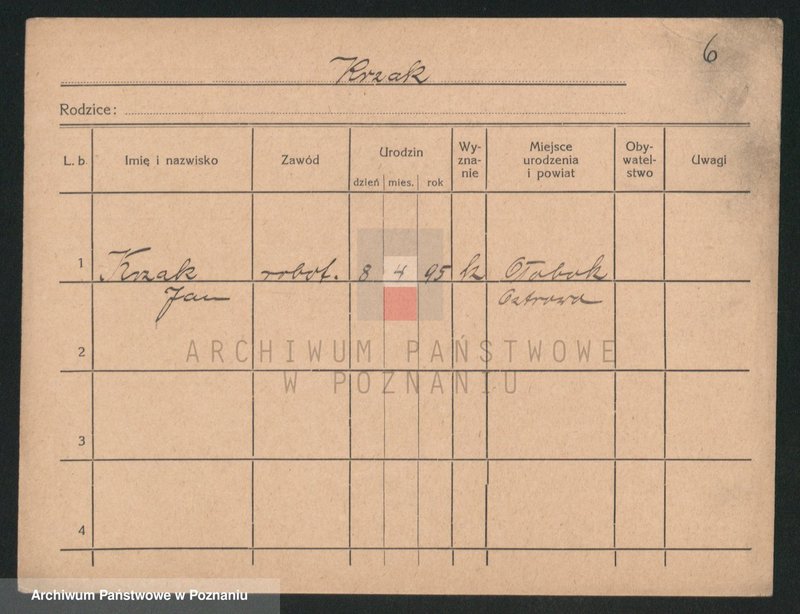 6
Krzak
Rodzice:
L. b. Imię i nazwisko Zawód Urodzin dzień mies. rok Wy-zna-nie Miejsce urodzenia i powiat Oby-watel-stwo Uwagi
1 Krzak robot. 8 4 95 k Ołobok
Jan Ostrowo
2
ARCHIWUM PAŃSTWOWE
W POZNANIU
3
4
Archiwum Państwowe w Poznaniu